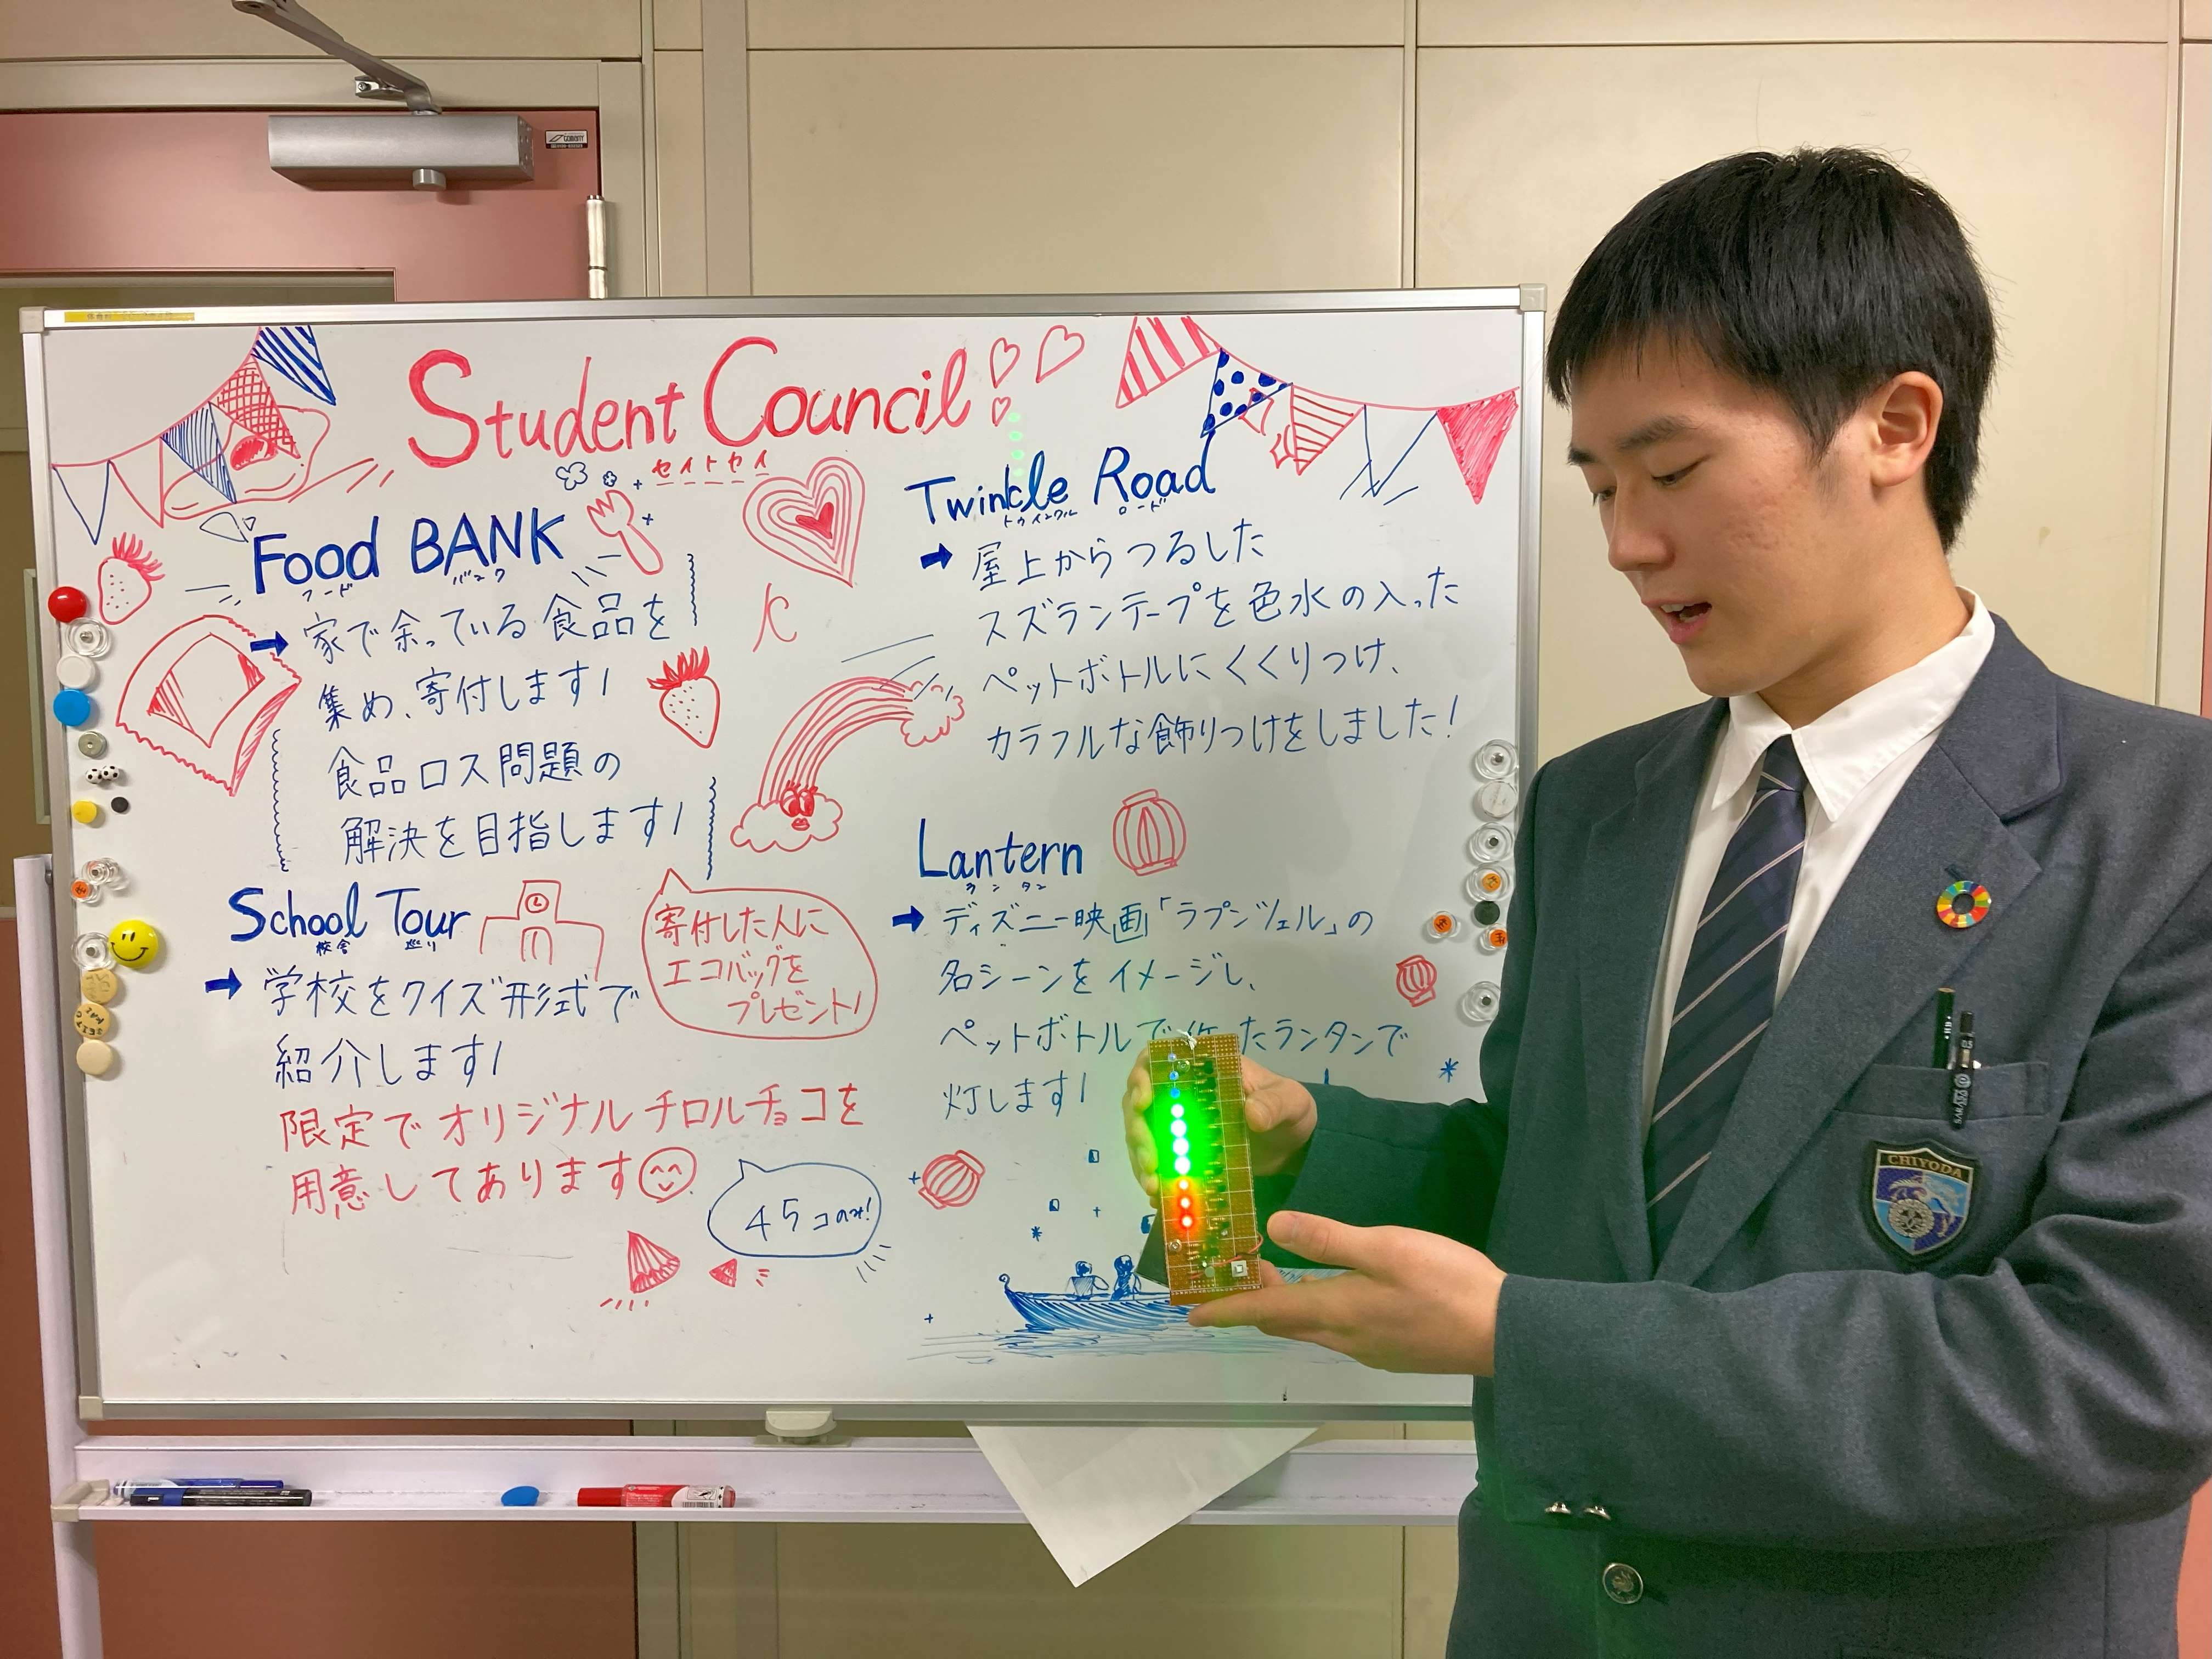 Student Council
セイトセイ
Food BANK
フード バンク
家で余っている食品を
集め、寄付します!
食品ロス問題の
解決を目指します!
寄付した人に
エコバッグを
プレゼント!
School Tour
校舎 巡り
学校をクイズ形式で
紹介します!
限定でオリジナルチロルチョコを
用意してあります
45コのみ!
Twinkle Road
トゥインクル ロード
屋上からつるした
スズランテープを色水の入った
ペットボトルにくくりつけ、
カラフルな飾りつけをしました!
Lantern
ランタン
ディズニー映画「ラプンツェル」の
名シーンをイメージし、
ペットボトルで たランタンで
灯します!
CHIYODA